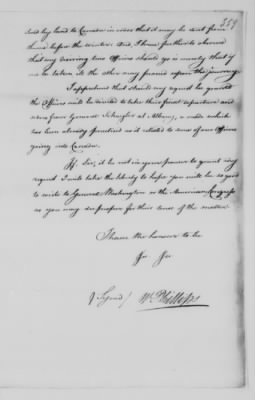 359
and by land to Canada in case that it may be sent from
thence before the winter. And I have further to observe
that my desiring two Officers should go is merely that if
one be taken ill the other may proceed upon the journey.
I apprehend that should my request be granted
the Officers will be directed to take their final departure and
orders from General Schuyler at Albany, a mode which
has been already practised as it related to some of our Officers
going into Canada.
If, Sir, it be not in your power to grant my
request I will take the liberty to hope you will be so good
to write to General Washington or the American Congress
as you may deem proper for their sense of the matter.
I have the honour to be
&c. &c.
(Signed) W. Phillips